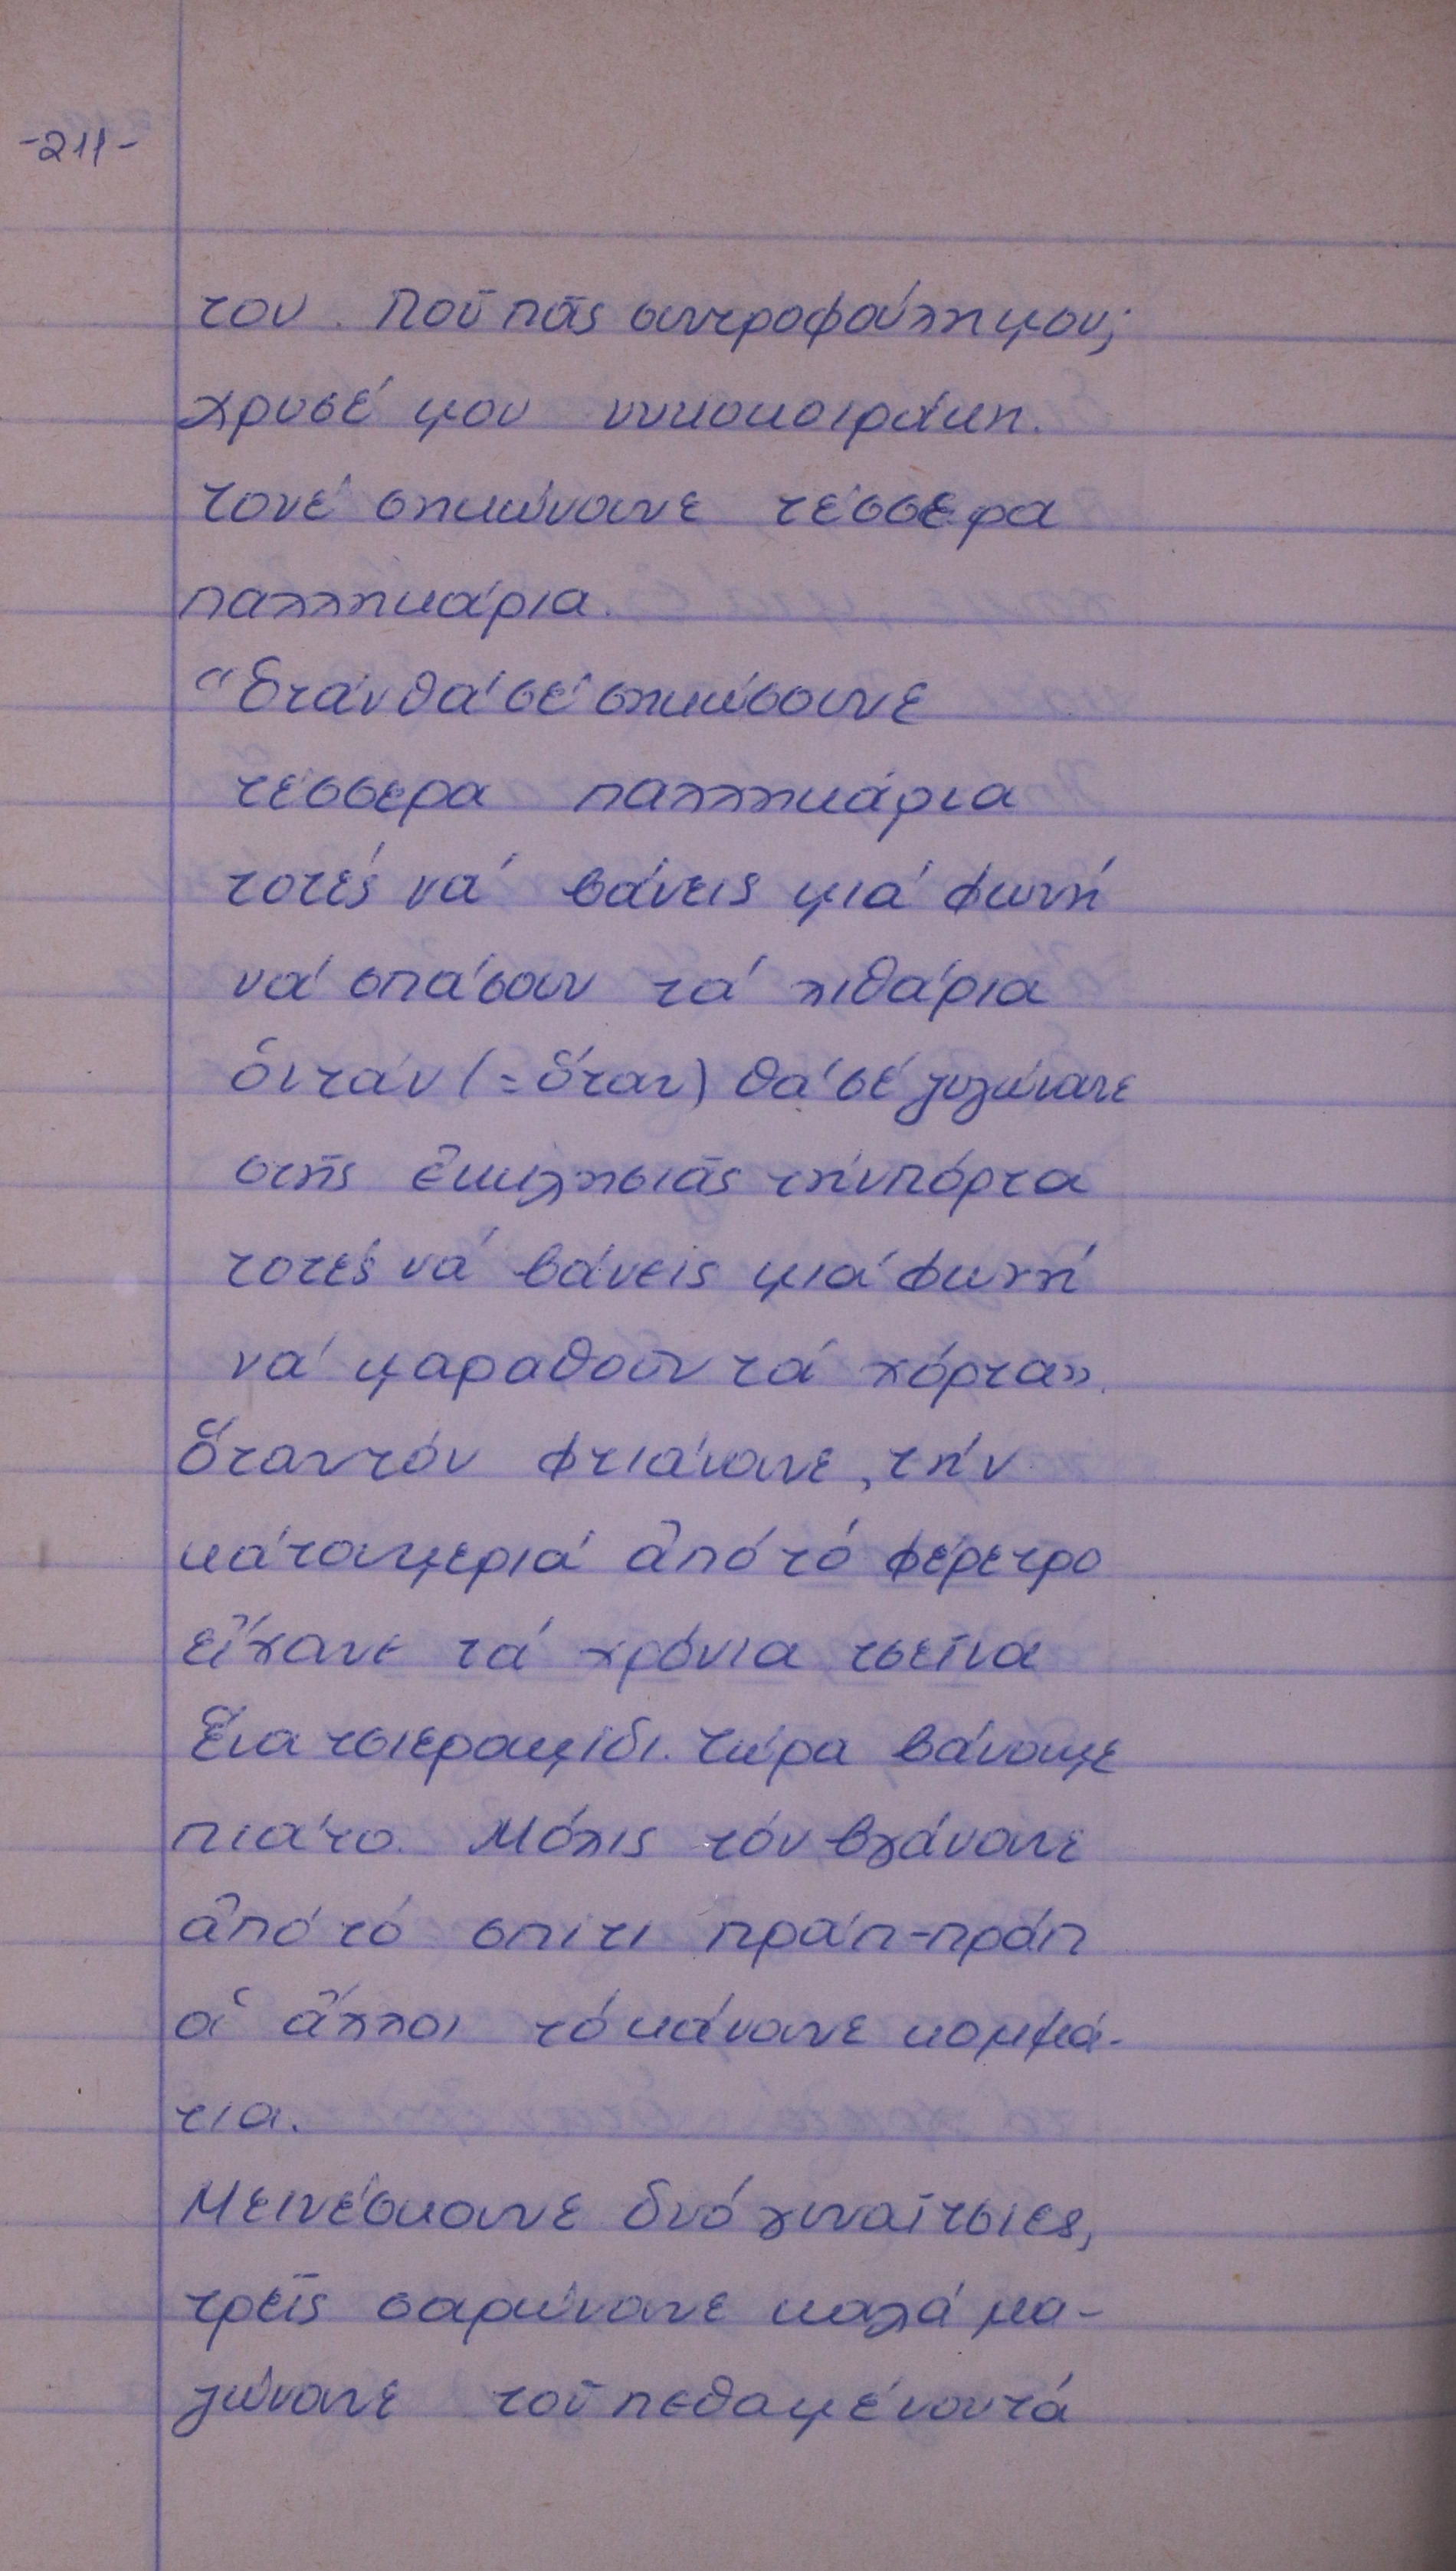 -211-
του. Ποῦ πᾶς συντροφούλλη μου;
χρυσέ μου νυκοκοιράκη.
τονέ σηκώνουνε τέσσερα
παλληκάρια.
"Ὁτάν θά σέ σηκώσουνε
τέσσερα παλληκάρια
τοτές νά βάνεις μιά φωνή
νά σπάσουν τά λιθάρια
ὁντάν (=ὅταν) θά σέ ζυγώνανε
στῆς ἐκκλησιᾶς τήν πόρτα
τοτές νά βάνεις μιά φωνή
νά μαραθοῦν τά χόρτα».
Ὅταν τόν φτιάνανε, τήν
κάτω μεριά ἀπό τό φέρετρο
εἴχανε τά χρόνια τσεῖνα
ἕνα τσιεραμίδι. Τώρα βάνομε
πιάτο. Μόλις τόν βγάνανε
ἀπό τό σπίτι πράπ-πράπ
οἱ ἄλλοι τό κάνανε κομμά-
τια.
Μεινέσκουνε δυό γυναῖτσιες,
τρεῖς σαρώνανε καλά μα-
ζώνανε τοῦ πεθαμένου τά